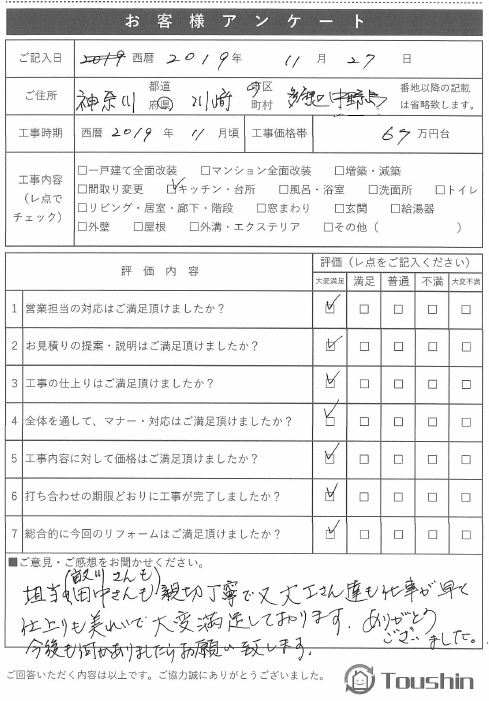 お客様アンケート
ご記入日 2019 西暦 2019年 11月 27日
ご住所 神奈川 都道府県 川崎 市区町村 多摩区 中野島 番地以降の記載は省略致します。
工事時期 西暦 2019年 11月頃 工事価格帯 67万円台
工事内容(レ点でチェック)
□一戸建て全面改装 □マンション全面改装 □増築・減築
□間取り変更 ☑キッチン・台所 □風呂・浴室 □洗面所 □トイレ
□リビング・居室・廊下・階段 □窓まわり □玄関 □給湯器
□外壁 □屋根 □外溝・エクステリア □その他( )
評価内容 評価(レ点をご記入ください)
大変満足 満足 普通 不満 大変不満
1 営業担当の対応はご満足頂けましたか? ☑ □ □ □ □
2 お見積りの提案・説明はご満足頂けましたか? ☑ □ □ □ □
3 工事の仕上りはご満足頂けましたか? ☑ □ □ □ □
4 全体を通して、マナー・対応はご満足頂けましたか? ☑ □ □ □ □
5 工事内容に対して価格はご満足頂けましたか? ☑ □ □ □ □
6 打ち合わせの期限どおりに工事が完了しましたか? ☑ □ □ □ □
7 総合的に今回のリフォームはご満足頂けましたか? ☑ □ □ □ □
■ご意見・ご感想をお聞かせください。
川さんも
担当の田中さんも親切丁寧で又大工さん達も仕事が早く
仕上りも美しいで大変満足しております。ありがとう
ございました。
今後も何かありましたらお願い致します。
ご回答いただく内容は以上です。ご協力誠にありがとうございました。
Toushin